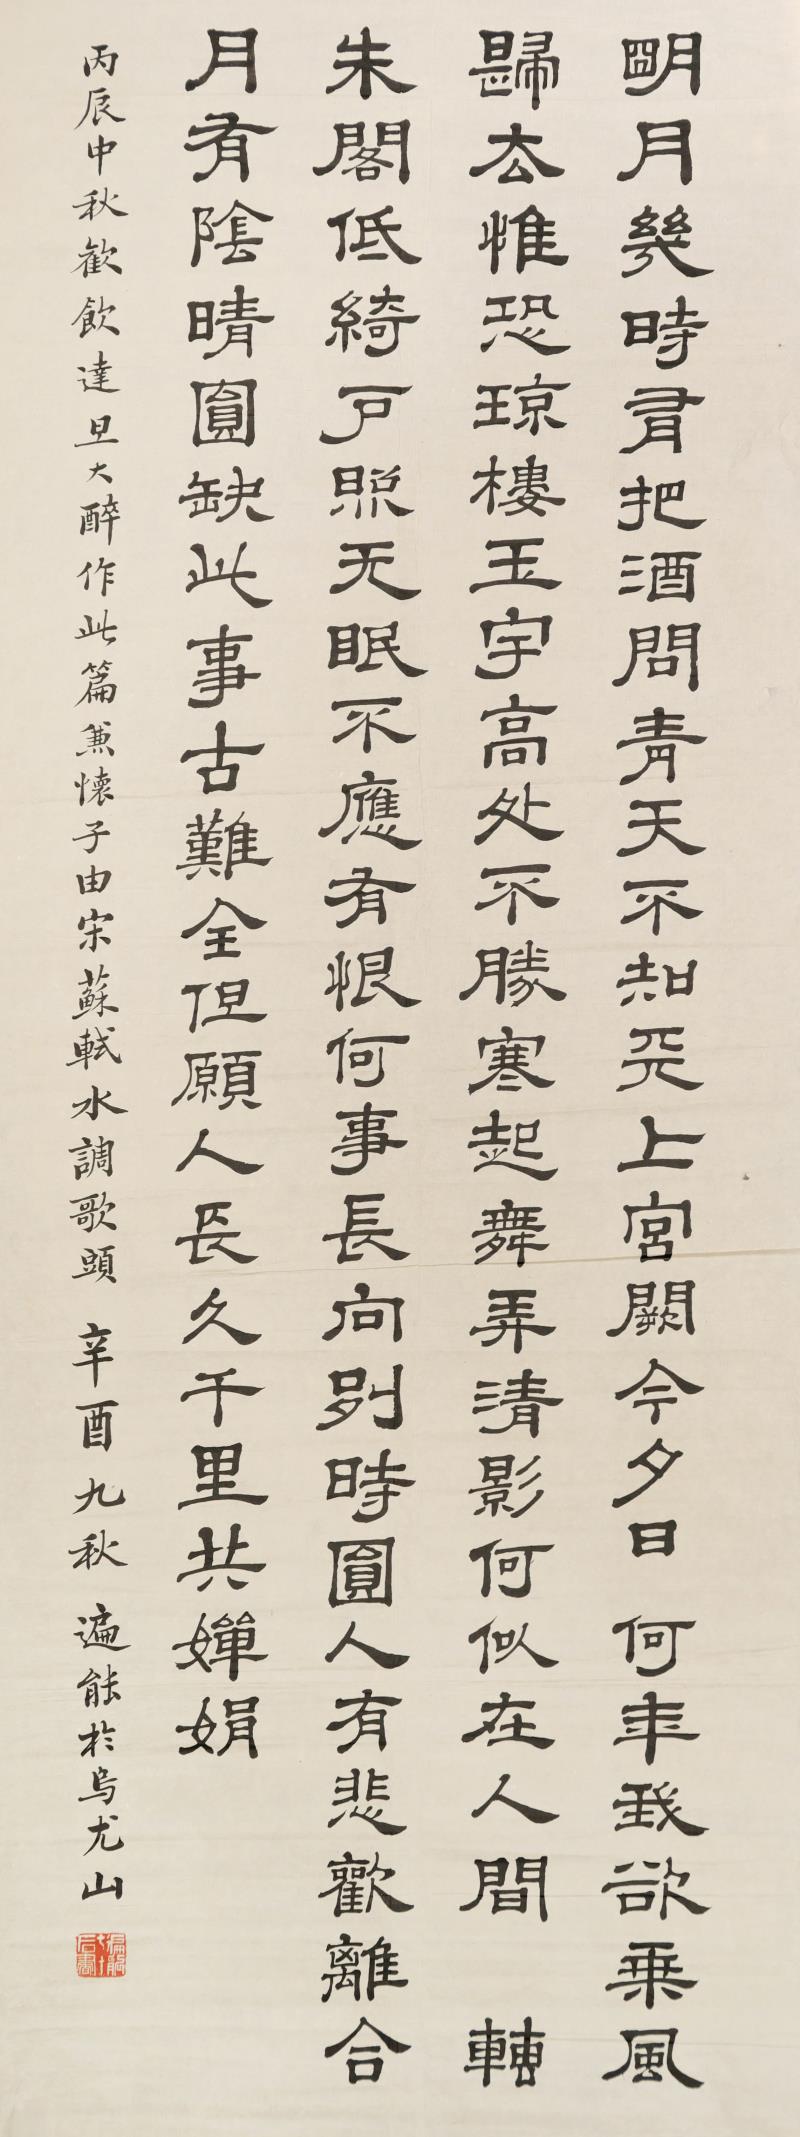 明月幾時有把酒問青天不知天上宮闕今夕日何年我欲乗風
歸去惟恐瓊樓玉宇高处不勝寒起舞弄清影何似在人間轉
朱閣低綺户照无眠不應有恨何事長向别時圓人有悲歡離合
月有陰晴圓缺此事古難全但願人長久千里共嬋娟
丙辰中秋歡飲達旦大醉作此篇兼懷子由宋蘇軾水調歌頭 辛酉九秋 遍能於烏尤山